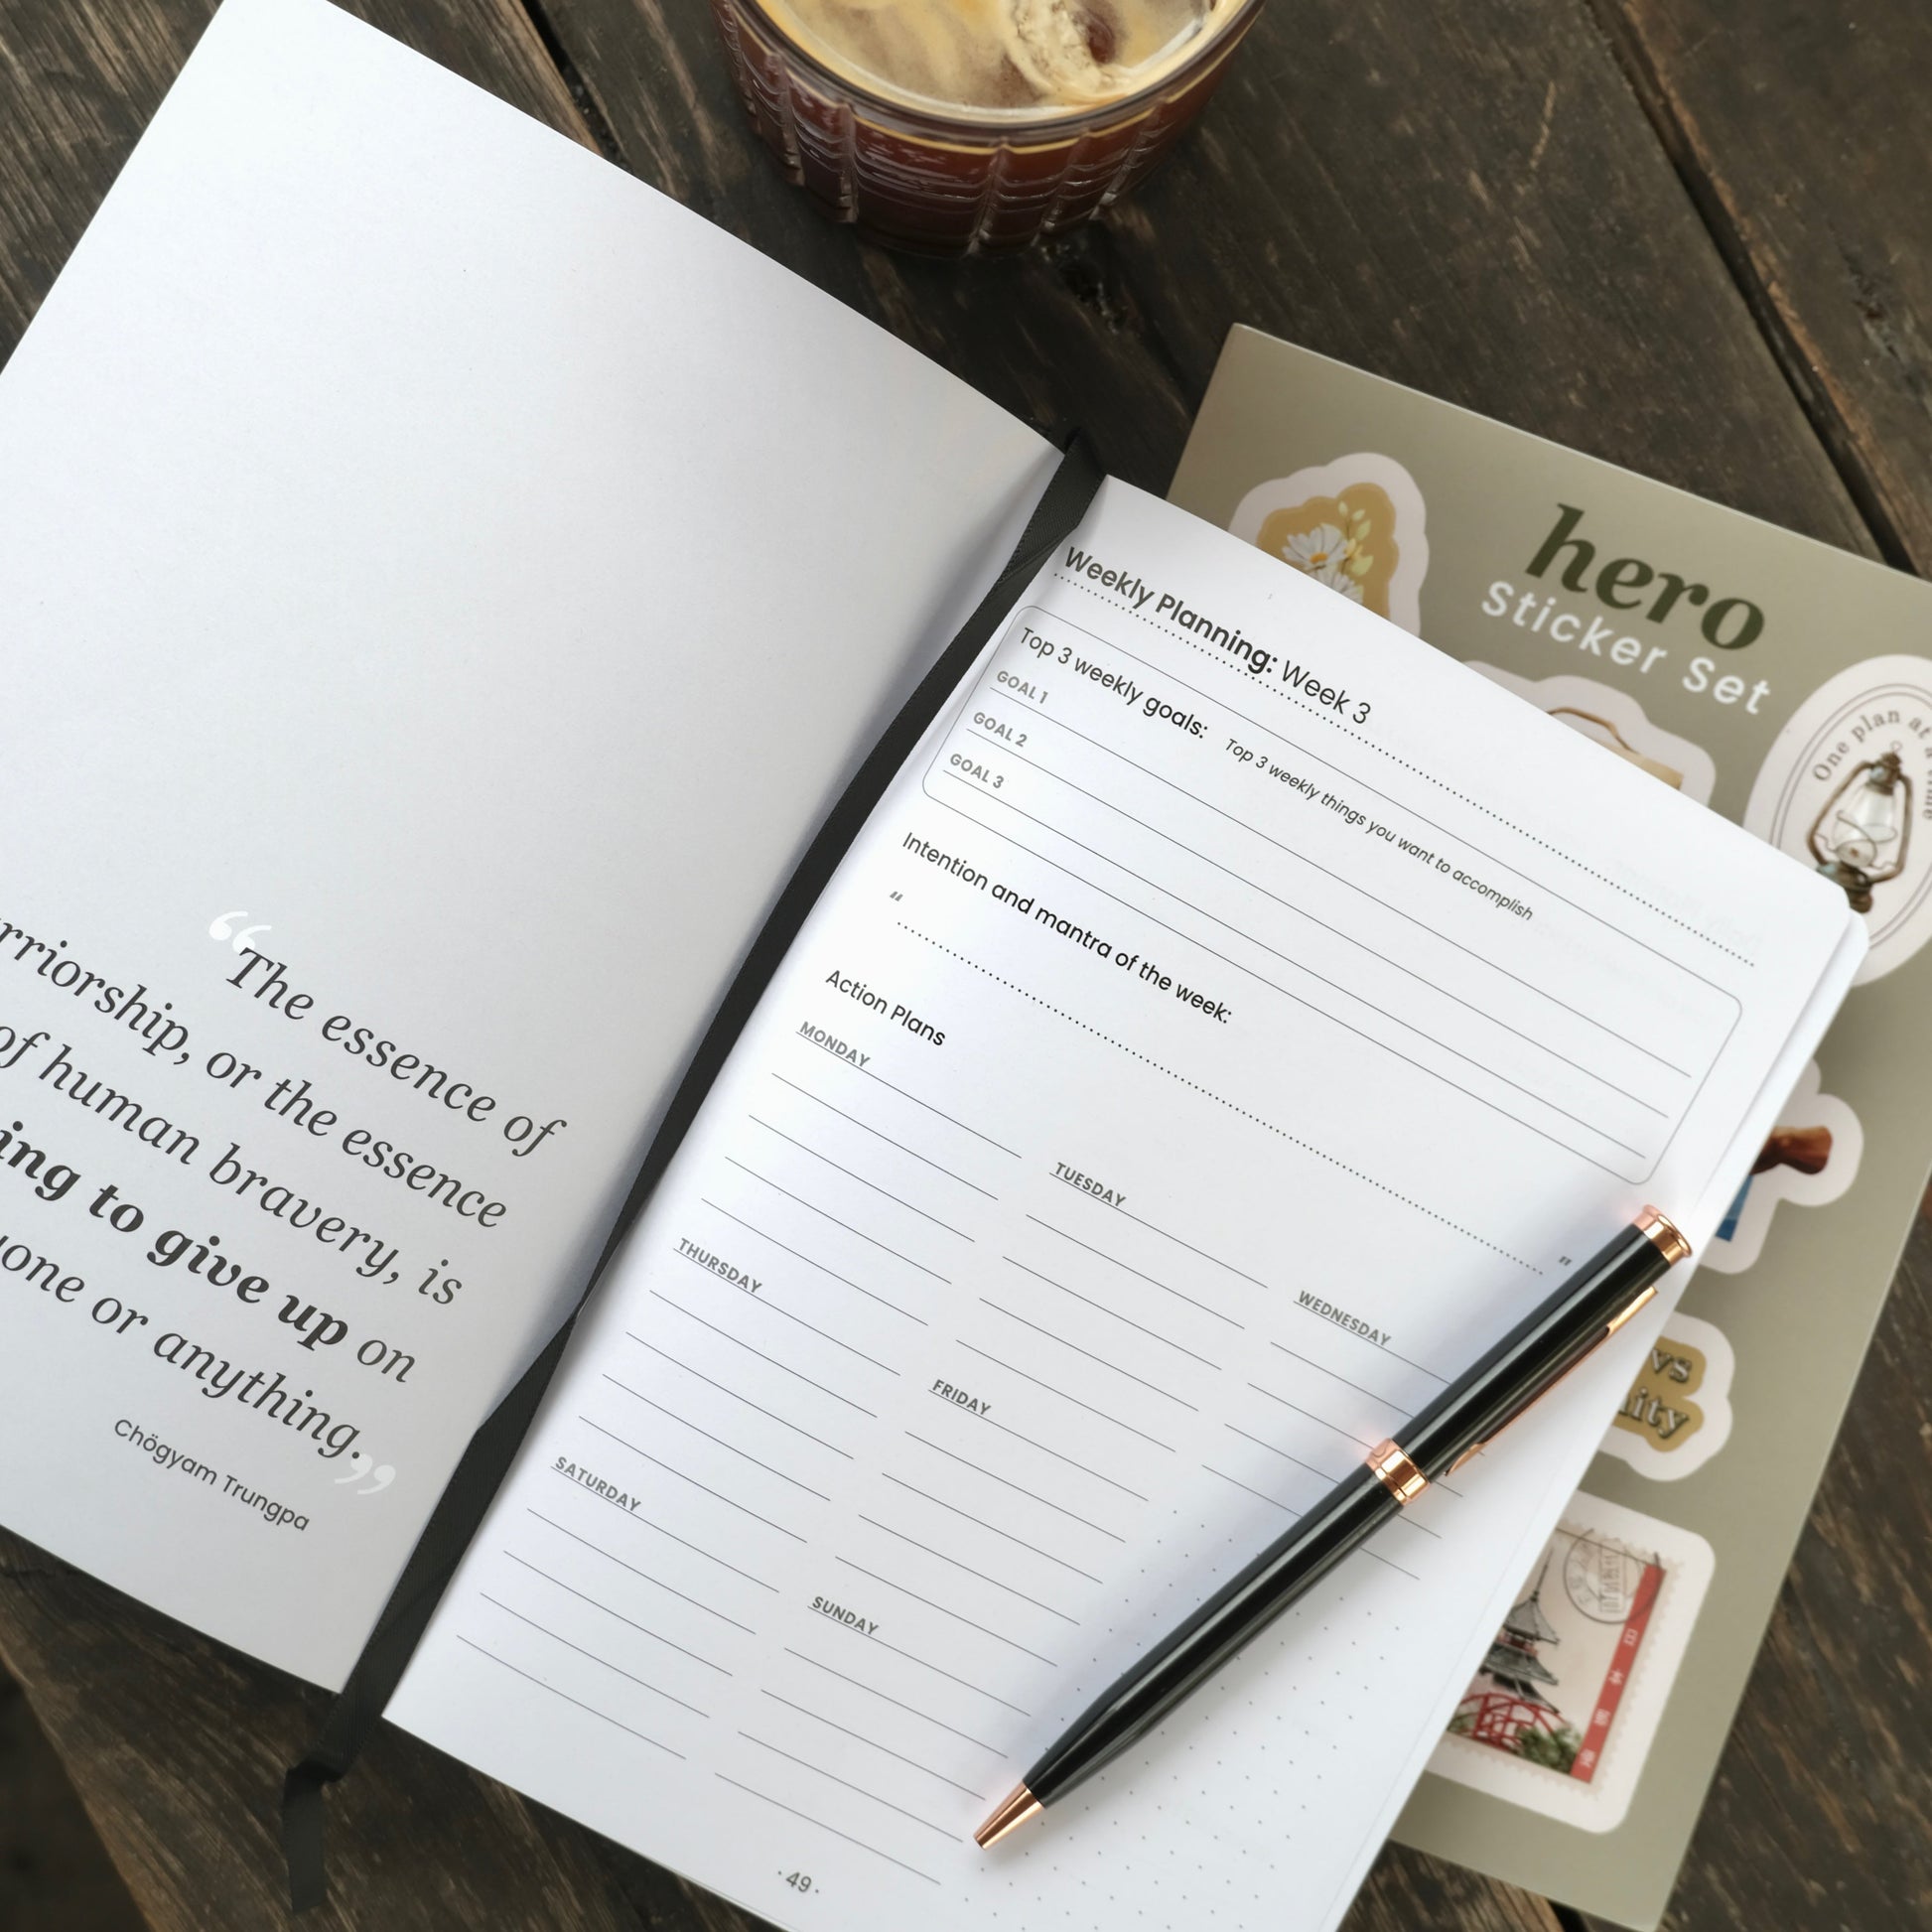 “The essence of
rriorship, or the essence
of human bravery, is
ing to give up on
one or anything.”
Chögyam Trungpa
Weekly Planning: Week 3
Top 3 weekly goals: Top 3 weekly things you want to accomplish
GOAL 1
GOAL 2
GOAL 3
Intention and mantra of the week:
“ ”
Action Plans
MONDAY
TUESDAY
WEDNESDAY
THURSDAY
FRIDAY
SATURDAY
SUNDAY
· 49 ·
hero
Sticker Set
One plan at a time
vs
ity
日本郵便